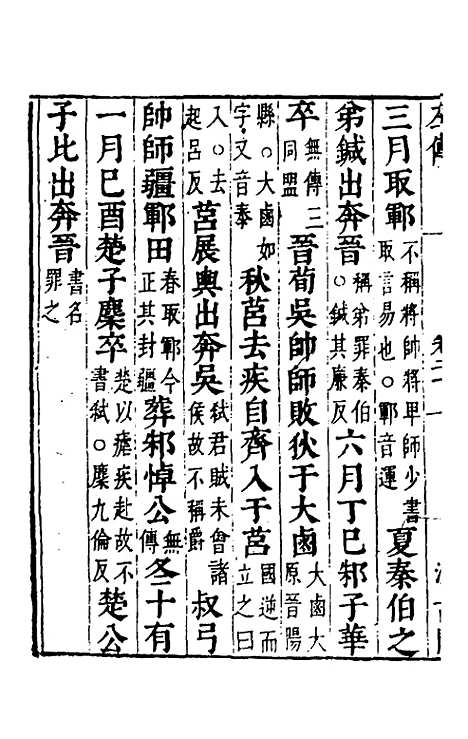 三月取鄆不稱將帥將卑師少書取言易也○鄆音運夏秦伯之
弟鍼出奔晉稱弟罪秦伯○鍼其廉反六月丁巳邾子華
卒無傳三同盟晉荀吳帥師敗狄于大鹵大鹵大原晉陽
縣○大鹵如字又音泰秋莒去疾自齊入于莒國逆而立之曰
入○去起呂反莒展輿出奔吳弑君賊未會諸侯故不稱爵叔弓
帥師疆鄆田春取鄆今正其封疆葬邾悼公無傳冬十有
一月己酉楚子麇卒楚以瘧疾赴故不書弑○麇九倫反楚公
子比出奔晉書名罪之